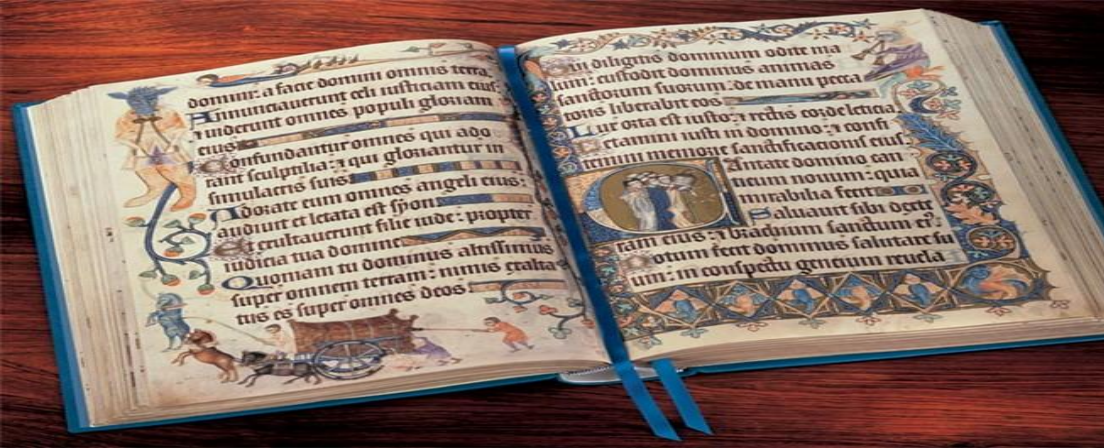 domini: a facie domini omnis terra.
Annunciauerunt celi iusticiam eius:
⁊ uiderunt omnes populi gloriam
eius
Confundantur omnes qui ado
rant sculptilia: ⁊ qui gloriantur in
simulacris suis
Adorate eum omnes angeli eius:
audiuit et letata est syon
Et exultauerunt filie iude: propter
iudicia tua domine
Quoniam tu dominus altissimus
super omnem terram: nimis exalta
tus es super omnes deos
Qui diligitis dominum odite ma
lum: custodit dominus animas
sanctorum suorum: de manu pecca
toris liberabit eos
Lux orta est iusto: ⁊ rectis corde leticia.
Letamini iusti in domino: ⁊ confi
temini memorie sanctificacionis eius.
Cantate domino can
ticum nouum: quia
mirabilia fecit
Saluauit sibi dexte
ram eius: ⁊ brachium sanctum ei⁹.
Notum fecit dominus salutare su
um: in conspectu gencium reuela